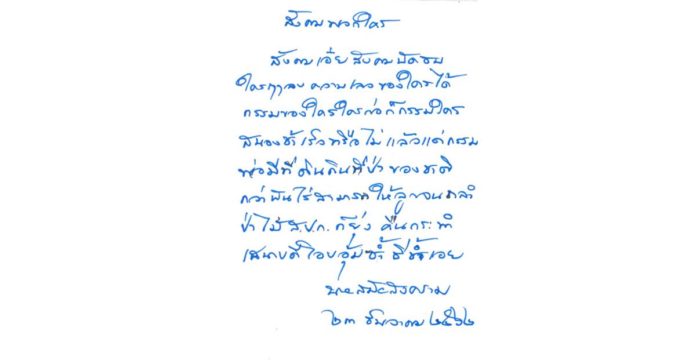 สังคมพวกใคร
สังคมเอ๋ยสังคมบัดซบ
ใครๆลบความเลวของใครได้
กรรมของใครใครก่อก็กรรมใคร
สนองช้าเร็วหรือไม่แล้วแต่กรรม
พ่อมีที่ดินกินที่ป่าของชาติ
กว่าพันไร่สามารถให้ลูก
ป่าไม้ ส.ป.ก. ก็ยุ่ง คืนกระทำ
เสนาบดีโอบอุ้มซ้ำ ชี้ช้ำเอย
พระสมะสิงคราม
๒๓ ธันวาคม ๒๕๖๒